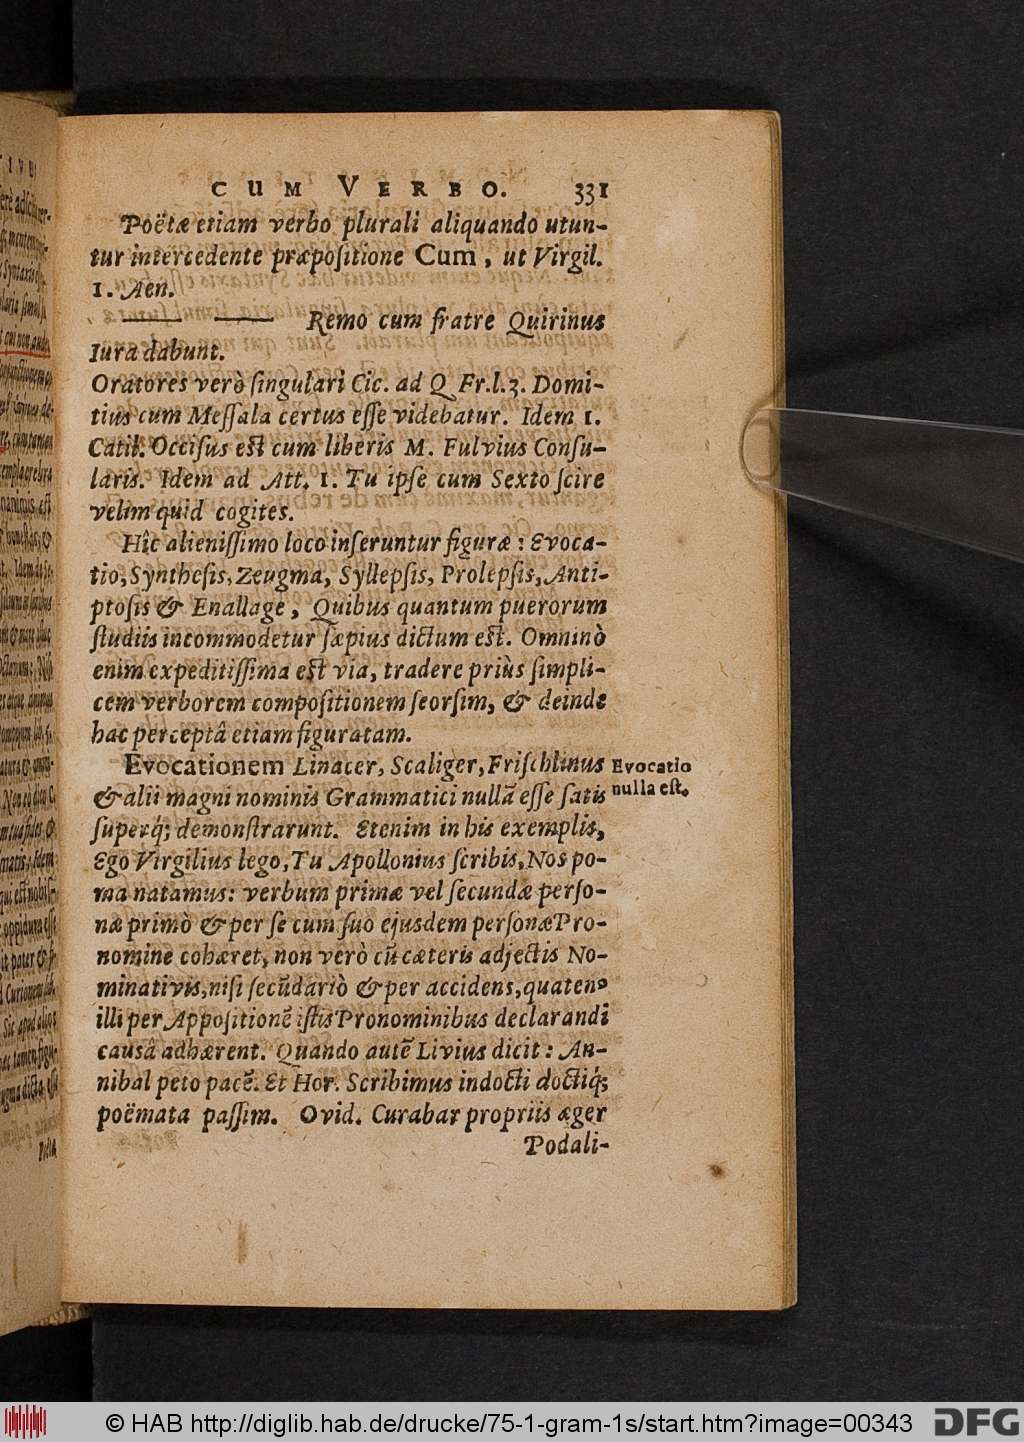 CUM VERBO. 331
Poëtæ etiam verbo plurali aliquando utun-
tur intercedente præpoſitione Cum, ut Virgil.
1. Aen.
—— —— Remo cum fratre Quirinus
Iura dabunt.
Oratores verò ſingulari Cic. ad Q Fr.l.3. Domi-
tius cum Meſſala certus eſſe videbatur. Idem 1.
Catil. Occiſus eſt cum liberis M. Fulvius Conſu-
laris. Idem ad Att. 1. Tu ipſe cum Sexto ſcire
velim quid cogites.
Hîc alieniſſimo loco inſeruntur figuræ: Evoca-
tio, Syntheſis, Zeugma, Syllepſis, Prolepſis, Anti-
ptoſis & Enallage, Quibus quantum puerorum
ſtudiis incommodetur ſæpius dictum eſt. Omninò
enim expeditiſſima eſt via, tradere priùs ſimpli-
cem verborem compoſitionem ſeorſim, & deinde
hac perceptâ etiam figuratam.
Evocationem Linacer, Scaliger, Friſchlinus
& alii magni nominis Grammatici nullã eſſe ſatis
ſuperq́; demonſtrarunt. Etenim in his exemplis,
Ego Virgilius lego, Tu Apollonius ſcribis, Nos po-
ma natamus: verbum primæ vel ſecundæ perſo-
næ primò & per ſe cum ſuo ejusdem perſonæ Pro-
nomine cohæret, non verò cũ cæteris adjectis No-
minativis, niſi ſecũdariò & per accidens, quatenꝰ
illi per Appoſitionẽ iſtis Pronominibus declarandi
causâ adhærent. Quando autẽ Livius dicit: An-
nibal peto pacẽ. Et Hor. Scribimus indocti doctiq́;
poëmata paſſim. Ovid. Curabar propriis æger
Podali-
Evocatio
nulla eſt.
© HAB http://diglib.hab.de/drucke/75-1-gram-1s/start.htm?image=00343
DFG